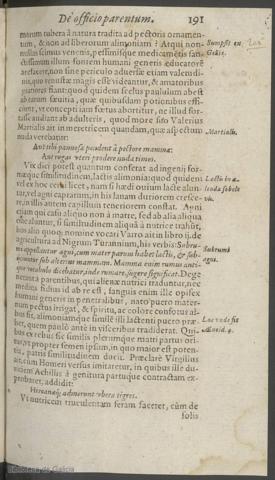 De officio parentum. 191
marum tubera à natura tradita ad pectoris ornamen-
tum, & non ad liberorum alimoniam? Atqui non-
nullas scimus veneris, pessimisque medicamētis san-
ctissimum illum fontem humani generis educatorē
arefacere, non sine periculo aduersæ etiam valetudi-
nis, quo venustæ magis esse videantur, & amatoribus
gratiores fiant: quod quidem scelus paululum abest
ab earum sæuitia, quæ quibusdam potionibus effi-
ciunt, vt concepti iam fœtus abortiātur, ne illud for-
tasse audiant ab adulteris, quod more suo Valerius
Martialis ait in meretricem quandam, quæ aspectum
nuda verebatur:
Aut tibi pannosæ pendent à pectore mammæ:
Aut rugas vteri prodere nuda times.
Vix dici potest quantum conferat ad ingenij for-
mæque similitudinem, lactis alimonia: quod quidem
vel ex hoc certè licet, nam si hœdi ouium lacte alun-
tur, vel agni caprarum, in his lanam duriorem cresce-
re, in illis autem capillum teneriorem constat. Agni
etiam qui catio aliquo non à matre, sed ab alia aliqua
educantur, si similitudinem aliquā à nutrice trahūt,
hos alio quoq; nomine vocari Varro ait in libro ij. de
agricultura ad Nigrum Turannium, his verbis: Subru-
mi appellantur agni, cum mater parum habet lactis, & sub-
ijciuntur sub alterius mammam. Mamma enim rumus anti-
quo vocabulo dicebatur, inde rumare, sugere significat. Dege
nerant à parentibus, qui alienæ nutrici traduntur, nec
medica fides id ab re est, sanguis enim ille opifex
humani generis in penetralibus, nato puero mater-
num pectus irrigat, & spiritu, ac colore confotus al-
bus fit, alimentumque simile illi lactenti puero præ-
bet, quem paulò antè in visceribus tradiderat. Qui-
bus ex rebus sic similis plerumque matri partus ori-
tur, vt propter semen ipsum, in quo maior est poten-
tia, patris similitudinem ducit. Præclarè Virgilius
ait, cùm Homeri versus imitaretur, in quibus ille du-
ritiem Achillis à genitura partuque contractam ex-
probraret, addidit:
Hircanæq; admorunt vbera tigres.
Vt nutricem truculentam feram faceret, cùm de
solis
Sumpsit ex
Gelio.
Martialis.
Lactis bonitas
Subrumi
agni.
Lac vnde fit